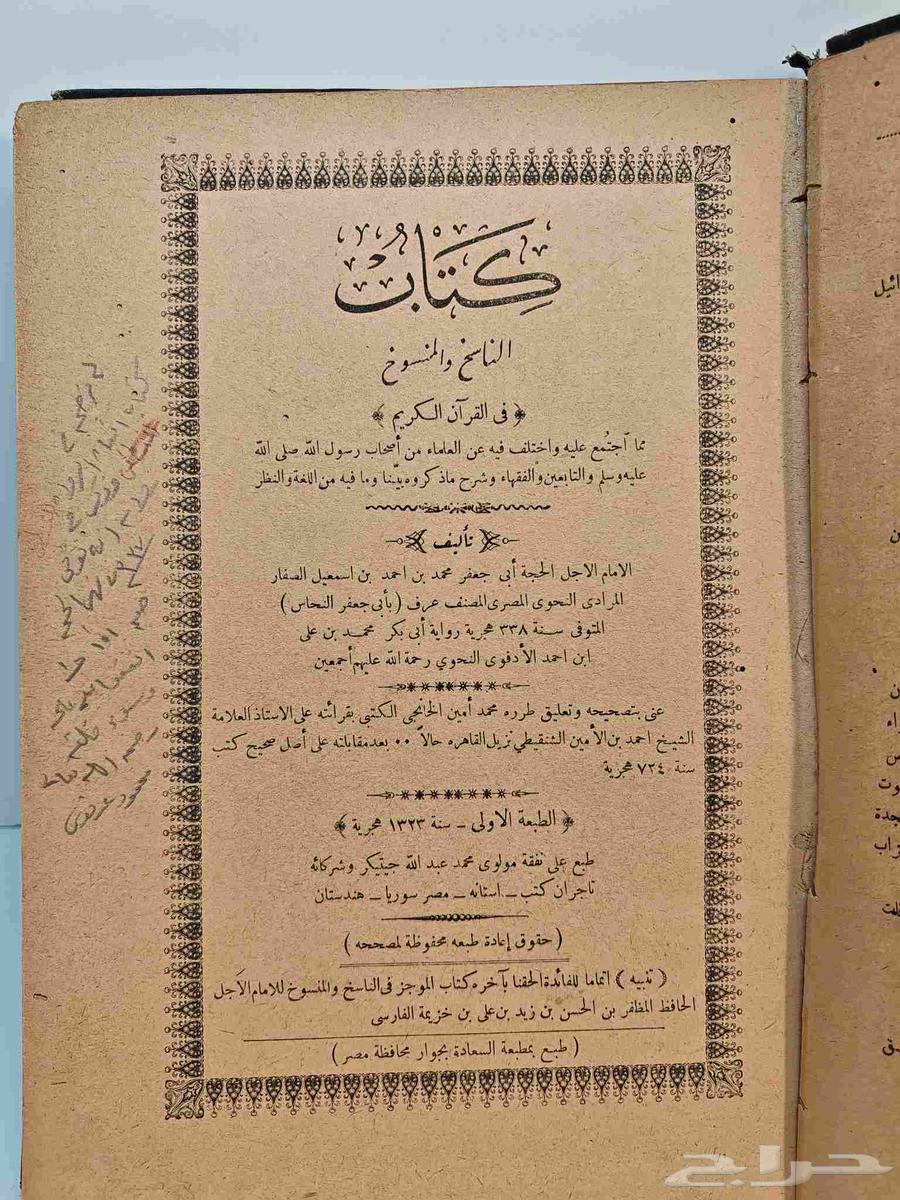 كِتَابُ
الناسخ والمنسوخ
﴿ فى القرآن الكريم ﴾
مما اجتُمع عليه واختلف فيه عن العلماء من أصحاب رسول الله صلى الله
عليه وسلم والتابعين والفقهاء وشرح ماذكروه بيّنا وما فيه من اللغة والنظر
تأليف
الامام الاجل الحجة أبى جعفر محمد بن احمد بن اسمعيل الصفار
المرادى النحوى المصرى المصنف عرف ( بأبى جعفر النحاس )
المتوفى سنة ٣٣٨ هجرية رواية أبى بكر محمد بن على
ابن احمد الأدفوى النحوي رحمة الله عليهم أجمعين
عنى بتصحيحه وتعليق طرره محمد أمين الخانجى الكتبى بقرائته على الاستاذ العلامة
الشيخ احمد بن الأمين الشنقيطى نزيل القاهره حالاً ٠٠ بعد مقابلته على أصل صحيح كتب
سنة ٧٢٤ هجرية
﴿ الطبعة الاولى ــ سنة ١٣٢٣ هجرية ﴾
طبع على نفقة مولوى محمد عبد الله جيتيكر وشركائه
تاجران كتب ــ استانه ــ مصر سوريا ــ هندستان
( حقوق إعادة طبعه محفوظة لمصححه )
( تنبيه ) اتماما للفائدة الحقنا بآخره كتاب الموجز فى الناسخ والمنسوخ للامام الاجل
الحافظ المظفر بن الحسن بن زيد بن على بن خزيمة الفارسى
( طبع بمطبعة السعادة بجوار محافظة مصر )
حراج